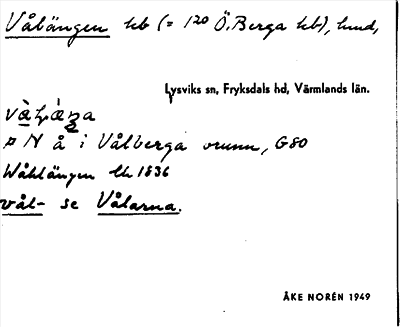 Vålängen hb (= 120 Ö. Berga hb), hmd,
Lysviks sn, Fryksdals hd, Värmlands län.
på N å i Vålberga orunn, G80
Wåhlängen lk 1836
vål- se Vålarna.
ÅKE NORÉN 1949